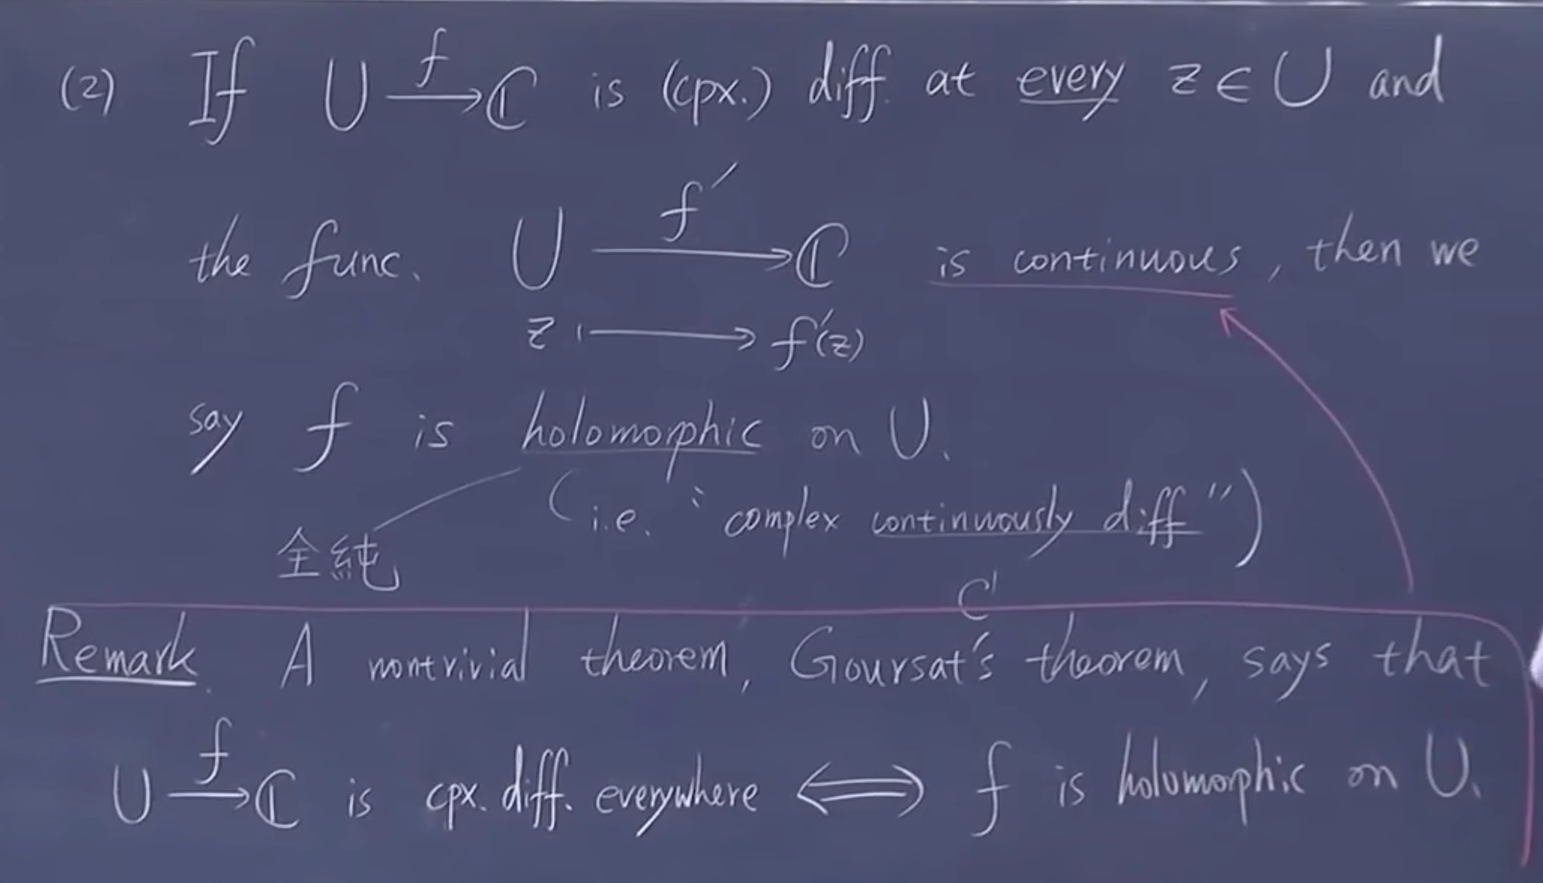 (2) If U →f ℂ is (cpx.) diff. at every z ∈ U and
the func. U →f′ ℂ is continuous, then we
z ↦ f′(z)
say f is holomorphic on U.
(i.e. "complex continuously diff")
全純
C¹
Remark. A nontrivial theorem, Goursat's theorem, says that
U →f ℂ is cpx. diff. everywhere ⟺ f is holomorphic on U.